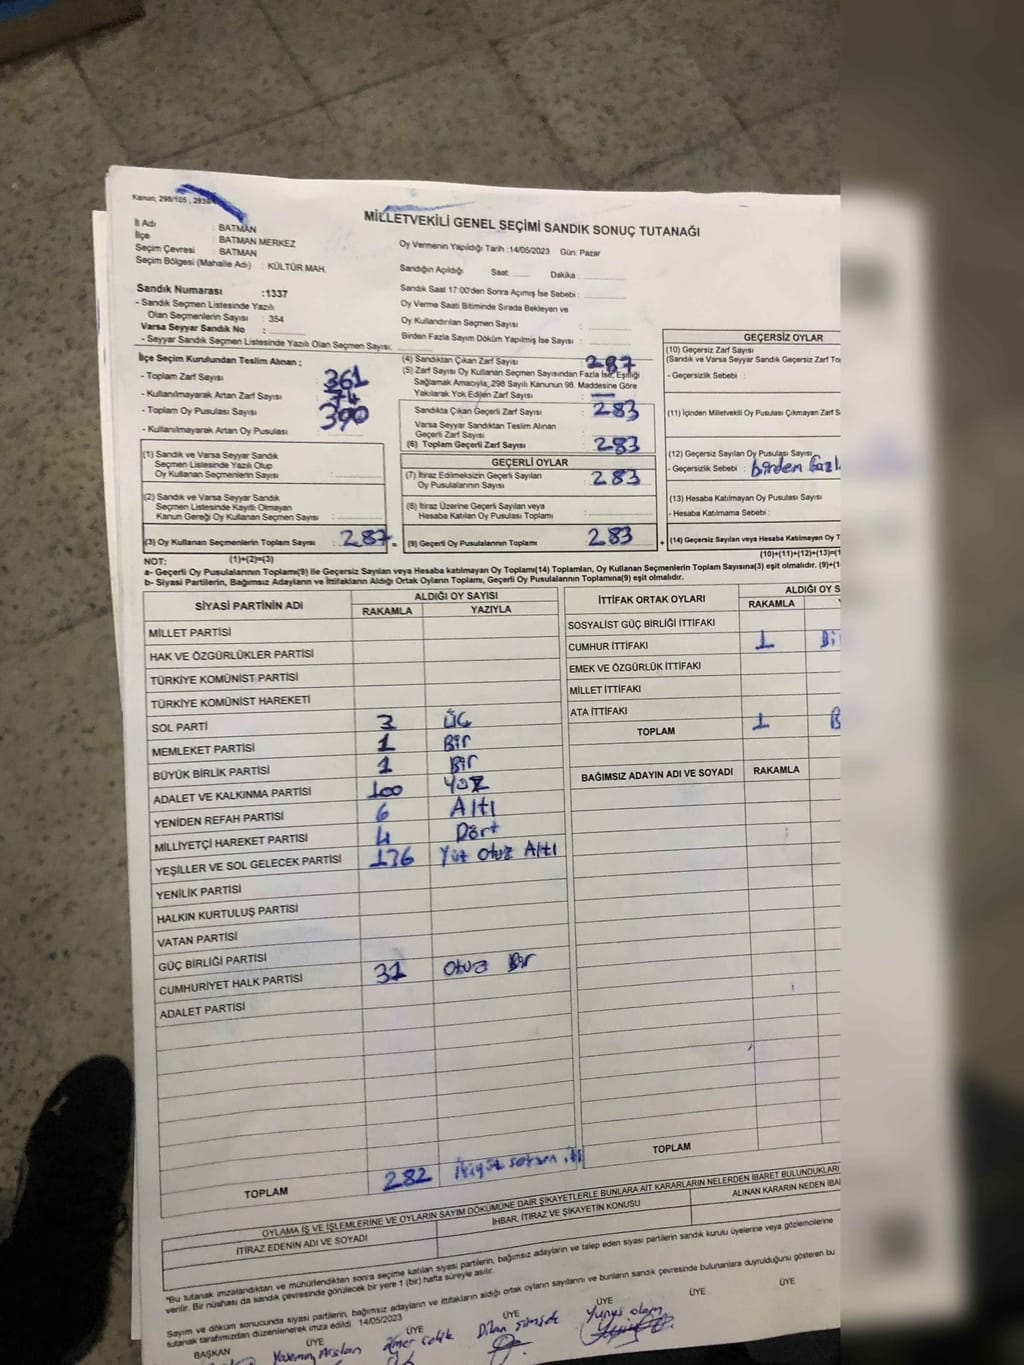 Kanun; 298/105 , 2839
MİLLETVEKİLİ GENEL SEÇİMİ SANDIK SONUÇ TUTANAĞI
İl Adı : BATMAN
İlçe : BATMAN MERKEZ
Seçim Çevresi : BATMAN
Seçim Bölgesi (Mahalle Adı) : KÜLTÜR MAH.
Oy Vermenin Yapıldığı Tarih :14/05/2023 Gün: Pazar
Sandığın Açıldığı Saat: ...... Dakika :
Sandık Saat 17:00'den Sonra Açımış İse Sebebi :
Oy Verme Saati Bitiminde Sırada Bekleyen ve
Oy Kullandırılan Seçmen Sayısı :
Birden Fazla Sayım Döküm Yapılmış İse Sayısı :
Sandık Numarası :1337
- Sandık Seçmen Listesinde Yazılı
Olan Seçmenlerin Sayısı : 354
Varsa Seyyar Sandık No :
- Seyyar Sandık Seçmen Listesinde Yazılı Olan Seçmen Sayısı:
İlçe Seçim Kurulundan Teslim Alınan ;
- Toplam Zarf Sayısı : 361
- Kullanılmayarak Artan Zarf Sayısı : 74
- Toplam Oy Pusulası Sayısı : 390
- Kullanılmayarak Artan Oy Pusulası :
(1) Sandık ve Varsa Seyyar Sandık
Seçmen Listesinde Yazılı Olup
Oy Kullanan Seçmenlerin Sayısı :
(2) Sandık ve Varsa Seyyar Sandık
Seçmen Listesinde Kayıtlı Olmayan
Kanun Gereği Oy Kullanan Seçmen Sayısı :
(3) Oy Kullanan Seçmenlerin Toplam Sayısı : 287 =
(4) Sandıktan Çıkan Zarf Sayısı : 287
(5) Zarf Sayısı Oy Kullanan Seçmen Sayısından Fazla İse, Eşitliği
Sağlamak Amacıyla, 298 Sayılı Kanunun 98. Maddesine Göre
Yakılarak Yok Edilen Zarf Sayısı : —
Sandıkta Çıkan Geçerli Zarf Sayısı : 283
Varsa Seyyar Sandıktan Teslim Alınan
Geçerli Zarf Sayısı :
(6) Toplam Geçerli Zarf Sayısı : 283
GEÇERLİ OYLAR
(7) İtiraz Edilmeksizin Geçerli Sayılan
Oy Pusulalarının Sayısı : 283
(8) İtiraz Üzerine Geçerli Sayılan veya
Hesaba Katılan Oy Pusulası Toplamı :
(9) Geçerli Oy Pusulalarının Toplamı 283 +
GEÇERSİZ OYLAR
(10) Geçersiz Zarf Sayısı
(Sandık ve Varsa Seyyar Sandık Geçersiz Zarf
- Geçersizlik Sebebi :
(11) İçinden Milletvekili Oy Pusulası Çıkmayan Zarf
(12) Geçersiz Sayılan Oy Pusulası Sayısı
- Geçersizlik Sebebi : birden
(13) Hesaba Katılmayan Oy Pusulası Sayısı
- Hesaba Katılmama Sebebi :
(14) Geçersiz Sayılan veya Hesaba Katılmayan Oy
NOT: (1)+(2)=(3)
(10)+(11)+(12)+(13)=
a- Geçerli Oy Pusulasının Toplamı(9) ile Geçersiz Sayılan veya Hesaba katılmayan Oy Toplamı(14) Toplamları, Oy Kullanan Seçmenlerin Toplam Sayısına(3) eşit olmalıdır. (9)+
b- Siyasi Partilerin, Bağımsız Adayların ve İttifakların Aldığı Ortak Oyların Toplamı, Geçerli Oy Pusulalarının Toplamına(9) eşit olmalıdır.
SİYASİ PARTİNİN ADI ALDIĞI OY SAYISI
RAKAMLA YAZIYLA
MİLLET PARTİSİ
HAK VE ÖZGÜRLÜKLER PARTİSİ
TÜRKİYE KOMÜNİST PARTİSİ
TÜRKİYE KOMÜNİST HAREKETİ
SOL PARTİ 3 Üç
MEMLEKET PARTİSİ 1 Bir
BÜYÜK BİRLİK PARTİSİ 1 Bir
ADALET VE KALKINMA PARTİSİ 100 Yüz
YENİDEN REFAH PARTİSİ 6 Altı
MİLLİYETÇİ HAREKET PARTİSİ 4 Dört
YEŞİLLER VE SOL GELECEK PARTİSİ 136 Yüz Otuz Altı
YENİLİK PARTİSİ
HALKIN KURTULUŞ PARTİSİ
VATAN PARTİSİ
GÜÇ BİRLİĞİ PARTİSİ
CUMHURİYET HALK PARTİSİ 31 Otuz Bir
ADALET PARTİSİ
TOPLAM 282 İkiyüz seksen
İTTİFAK ORTAK OYLARI ALDIĞI OY
RAKAMLA
SOSYALİST GÜÇ BİRLİĞİ İTTİFAKI
CUMHUR İTTİFAKI 1
EMEK VE ÖZGÜRLÜK İTTİFAKI
MİLLET İTTİFAKI
ATA İTTİFAKI
TOPLAM 1
BAĞIMSIZ ADAYIN ADI VE SOYADI RAKAMLA
TOPLAM
OYLAMA İŞ VE İŞLEMLERİNE VE OYLARIN SAYIM DÖKÜMÜNE DAİR ŞİKAYETLERLE BUNLARA AİT KARARLARIN NELERDEN İBARET BULUNDUKLARI
İTİRAZ EDENİN ADI VE SOYADI İHBAR, İTİRAZ VE ŞİKAYETİN KONUSU ALINAN KARARIN NEDEN
"Bu tutanak imzalandıktan ve mühürlendikten sonra seçime katılan siyasi partilerin, bağımsız adayların ve talep eden siyasi partilerin sandık kurulu üyelerine veya gözlemcilerine
verilir. Bir nüshası da sandık çevresinde görülecek bir yere 1 (bir) hafta süreyle asılır.
Sayım ve döküm sonucunda siyasi partilerin, bağımsız adayların ve ittifakların aldığı ortak oyların sayılarını ve bunların sandık çevresinde bulunanlara duyrulduğunu gösteren bu
tutanak tarafımızdan düzenlenerek imza edildi. 14/05/2023
BAŞKAN ÜYE ÜYE ÜYE ÜYE ÜYE ÜYE
Yasemin Arslan Ömer Çelik Dilan Yunus